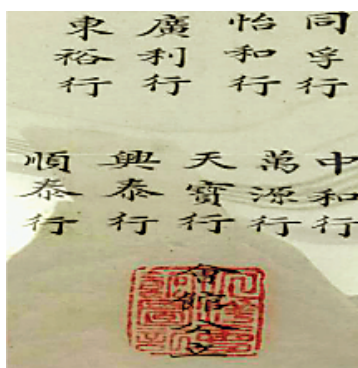 同孚行
怡和行
廣利行
東裕行
中和行
萬源行
天寶行
興泰行
順泰行
會館仝立